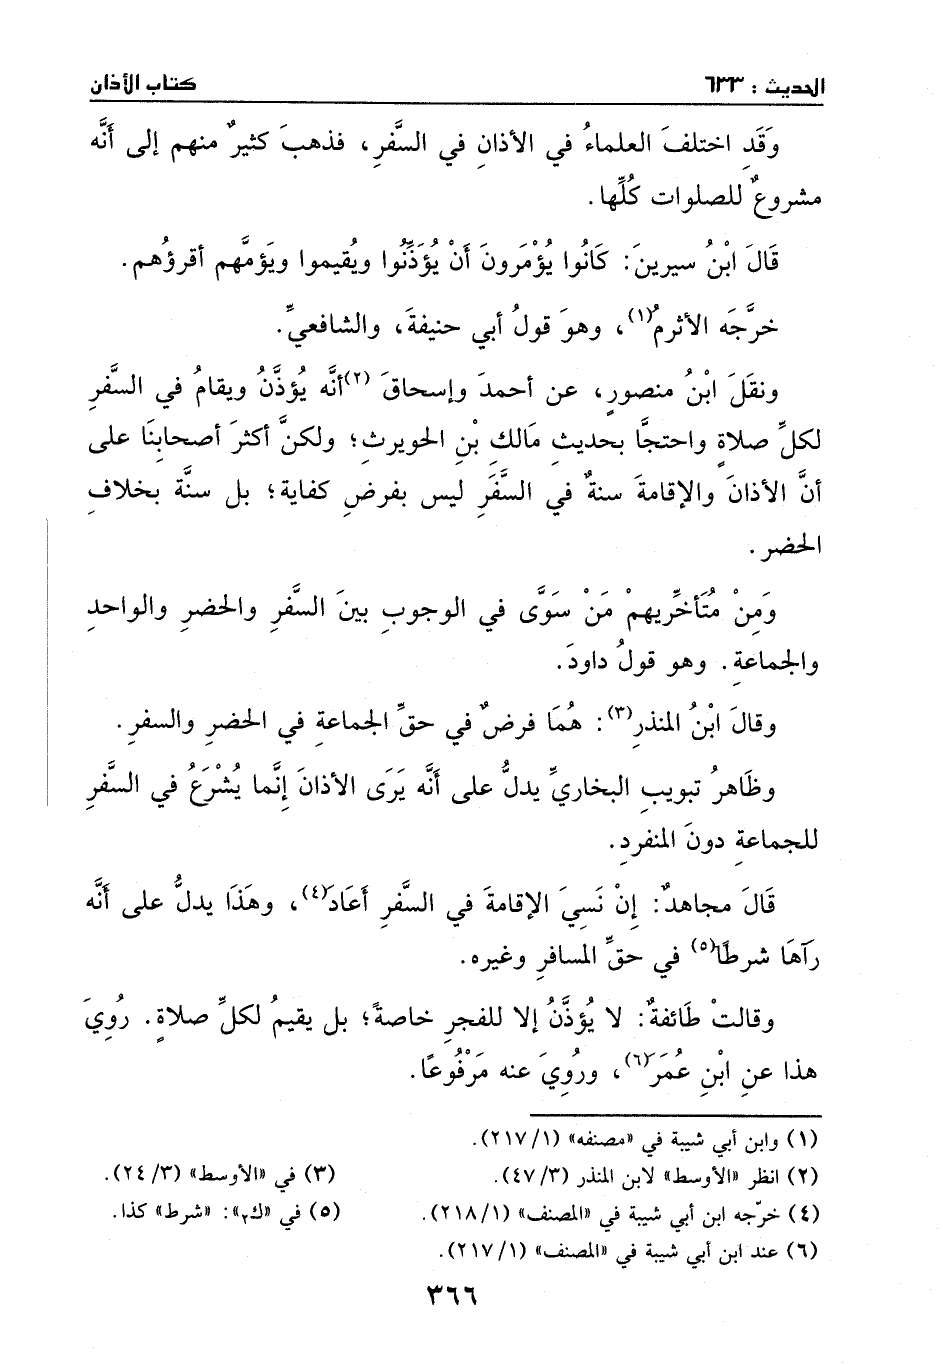 الحديث : ٦٣٣
كتاب الأذان
وَقَدِ اختلفَ العلماءُ في الأذانِ في السَّفرِ، فذهبَ كثيرٌ منهم إلى أَنَّه
مشروعٌ للصلوات كُلِّها.
قَالَ ابْنُ سيرينَ: كَانُوا يُؤْمَرونَ أَنْ يُؤَذِّنُوا ويُقيموا ويَؤمَّهم أقرؤُهم.
خرَّجَه الأثرمُ(١)، وهوَ قولُ أبي حنيفةَ، والشافعيِّ.
ونقَلَ ابْنُ منصورٍ، عن أحمدَ وإسحاقَ (٢)أنَّه يُؤذَّنُ ويقامُ في السَّفرِ
لكلِّ صلاةٍ واحتجَّا بحديثِ مَالكِ بْنِ الحويرثِ؛ ولكنَّ أكثرَ أصحابِنَا على
أنَّ الأذانَ والإقامةَ سنةٌ في السَّفَرِ ليس بفرضِ كفاية؛ بل سنَّة بخلافِ
الحضرِ.
وَمِنْ مُتَأخِّريهمْ مَنْ سَوَّى في الوجوبِ بينَ السَّفرِ والحضرِ والواحدِ
والجماعةِ. وهو قولُ داودَ.
وقالَ ابْنُ المنذرِ(٣): هُمَا فرضٌ في حقِّ الجماعةِ في الحضرِ والسفرِ.
وظَاهرُ تبويبِ البخاريِّ يدلُّ على أَنَّه يَرَى الأذانَ إِنَّما يُشْرَعُ في السَّفرِ
للجماعةِ دونَ المنفردِ.
قَالَ مجاهدٌ: إِنْ نَسِيَ الإقامةَ في السَّفرِ أَعَادَ(٤)، وهَذَا يدلُّ على أَنَّه
رآهَا شرطًا(٥) في حقِّ المسافرِ وغيره.
وقالتْ طَائفةٌ: لا يُؤذَّنُ إلا للفجرِ خاصةً؛ بل يقيمُ لكلِّ صلاةٍ. رُوِيَ
هذا عنِ ابْنِ عُمَرَ(٦)، ورُوِيَ عنه مَرْفُوعًا.
(١) وابن أبي شيبة في «مصنفه» (١/ ٢١٧).
(٢) انظر «الأوسط» لابن المنذر (٣/ ٤٧).
(٣) في «الأوسط» (٣/ ٢٤).
(٤) خرّجه ابن أبي شيبة في «المصنف» (١/ ٢١٨).
(٥) في «ك٢»: «شرط» كذا.
(٦) عند ابن أبي شيبة في «المصنف» (١/ ٢١٧).
٣٦٦